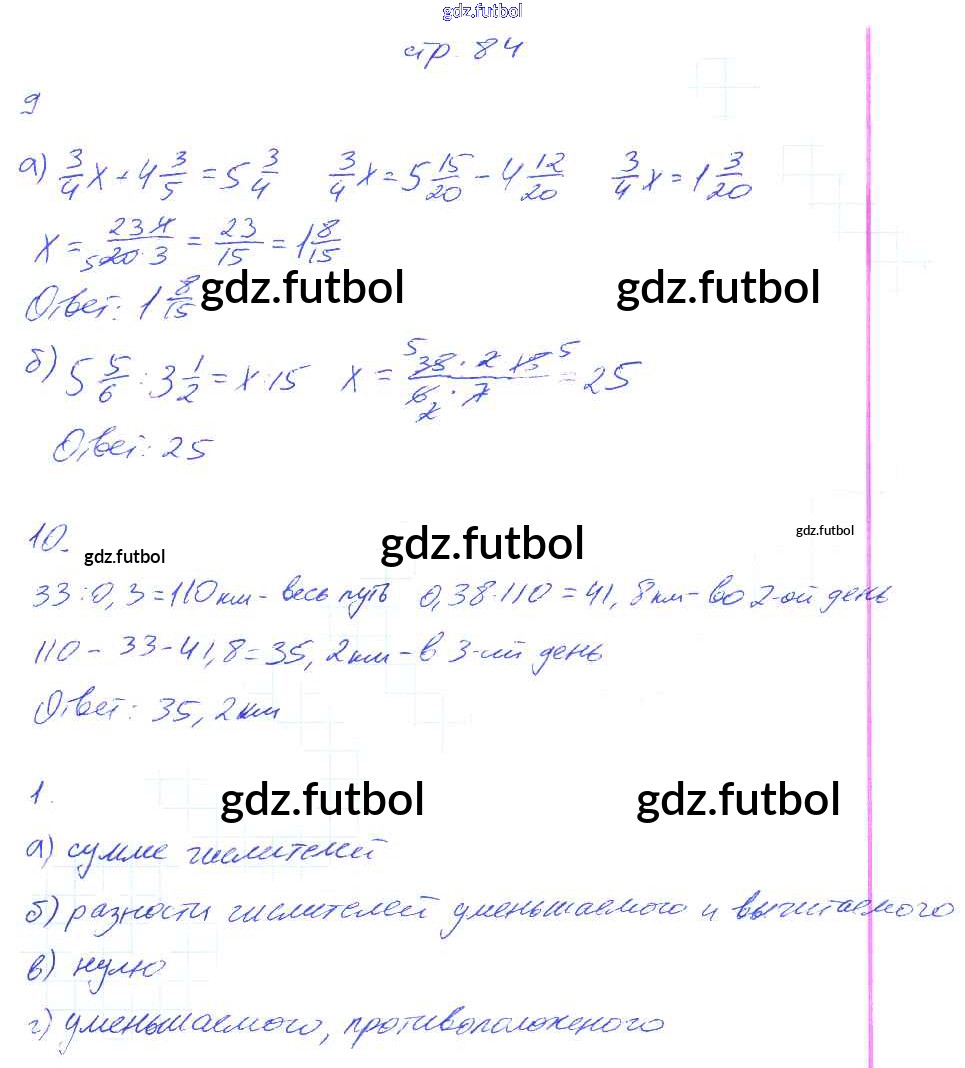 gdz.futbol
стр. 84
9
а) 3/4 x + 4 3/5 = 5 3/4   3/4 x = 5 15/20 - 4 12/20   3/4 x = 1 3/20
x = 23·4/20·3 5 = 23/15 = 1 8/15
Ответ: 1 8/15 gdz.futbol gdz.futbol
б) 5 5/6 : 3 1/2 = x : 15   x = 5 38 · 2 · 15 5 / 6 2 · 7 = 25
Ответ: 25
10. gdz.futbol gdz.futbol gdz.futbol
33 : 0,3 = 110 км - весь путь   0,38 · 110 = 41,8 км - во 2-ой день
110 - 33 - 41,8 = 35,2 км - в 3-ий день
Ответ: 35,2 км
1. gdz.futbol gdz.futbol
а) сумме числителей
б) разности числителей уменьшаемого и вычитаемого
в) нулю
г) уменьшаемого, противоположеного